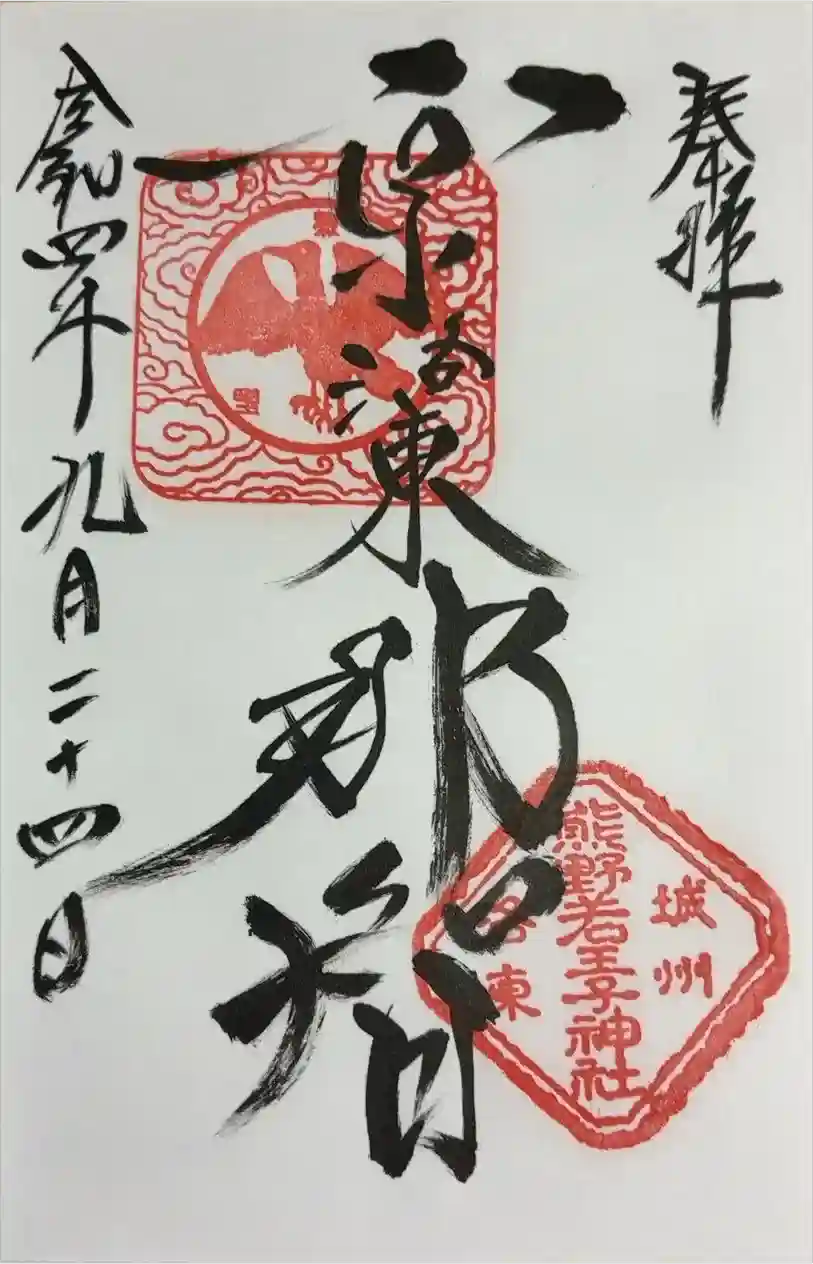 奉拝
京洛東
那智
令和四年九月二十四日
城州
熊野若王子神社
洛東